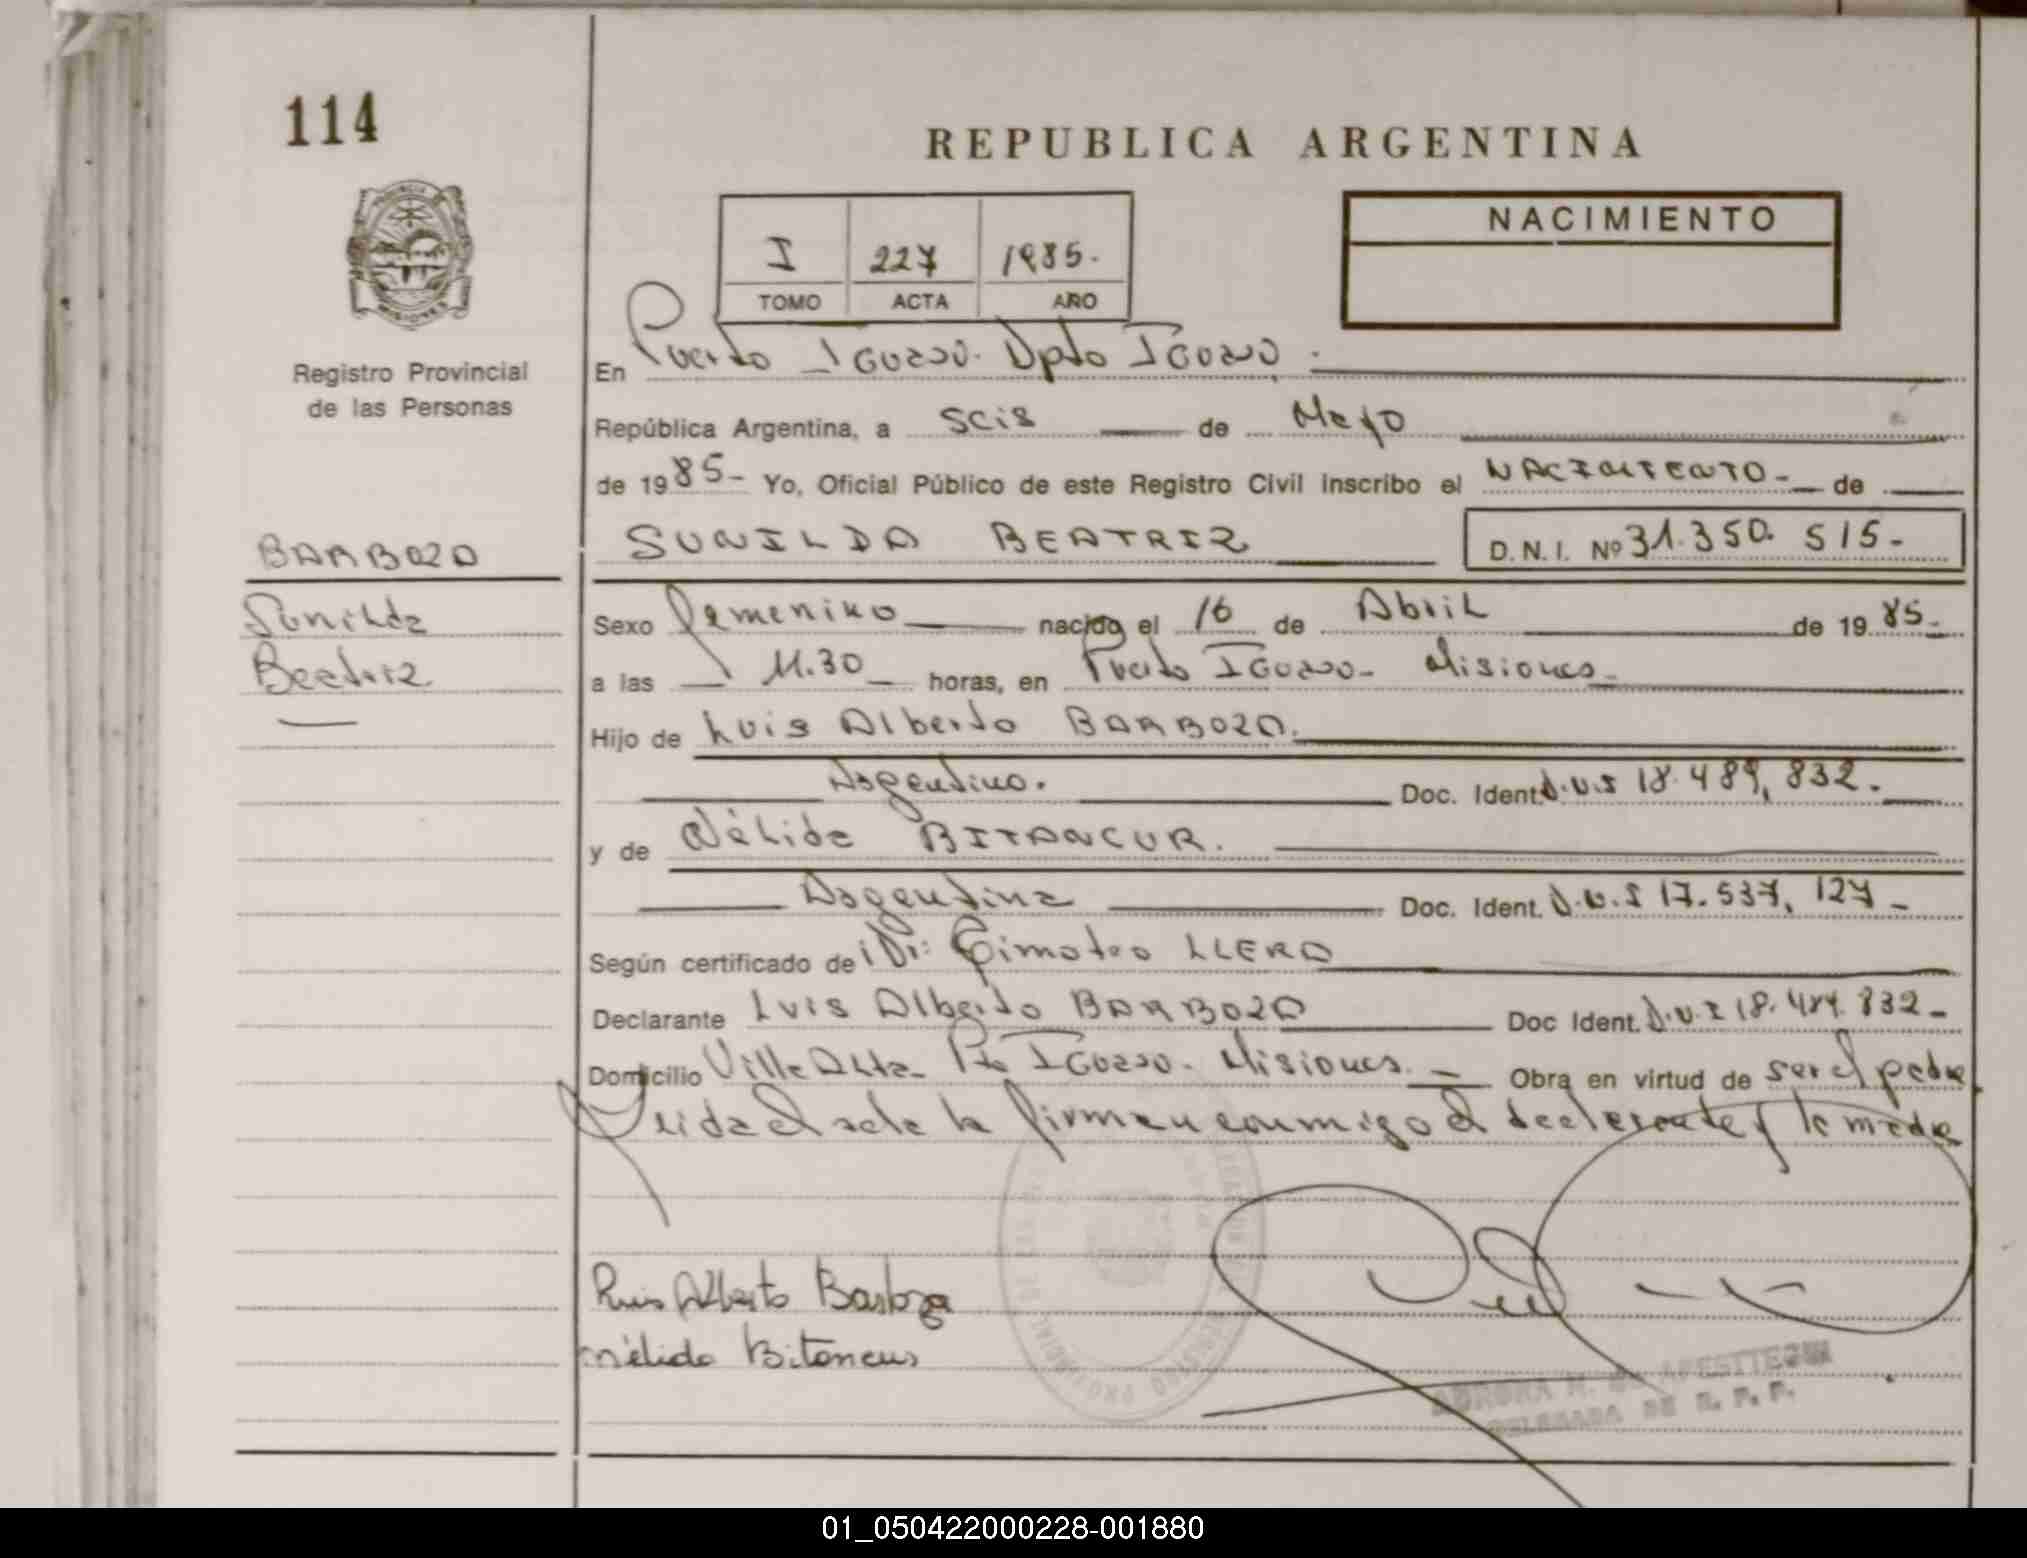 114
REPUBLICA ARGENTINA
NACIMIENTO
I 227 1985.-
TOMO ACTA AÑO
Registro Provincial
de las Personas
En Puerto Iguazú. Dpto Iguazú.
República Argentina, a seis de Mayo
de 1985- Yo, Oficial Público de este Registro Civil inscribo el NACIMIENTO- de
SUNILDA BEATRIZ D.N.I. Nº 31.350.515-
BARBOZA
Sunilda
Beatriz
Sexo femenino nacido el 16 de Abril de 1985-
a las 11.30 horas, en Puerto Iguazú- Misiones-
Hijo de Luis Alberto BARBOZA.
Argentino. Doc. Ident. D.N.I 18.489.832.-
y de Nélida BITANCUR.
Argentina Doc. Ident. D.N.I 17.537.127-
Según certificado de Dr: Timoteo LLERA
Declarante Luis Alberto BARBOZA Doc Ident. D.N.I 18.489.832-
Domicilio Villa Alta- Pto Iguazú. Misiones.- Obra en virtud de ser el padre
Leida el acta la firman conmigo el declarante y la madre
Luis Alberto Barboza
Nélida Bitancur
DELEGADA DE R. P. P.
01_050422000228-001880